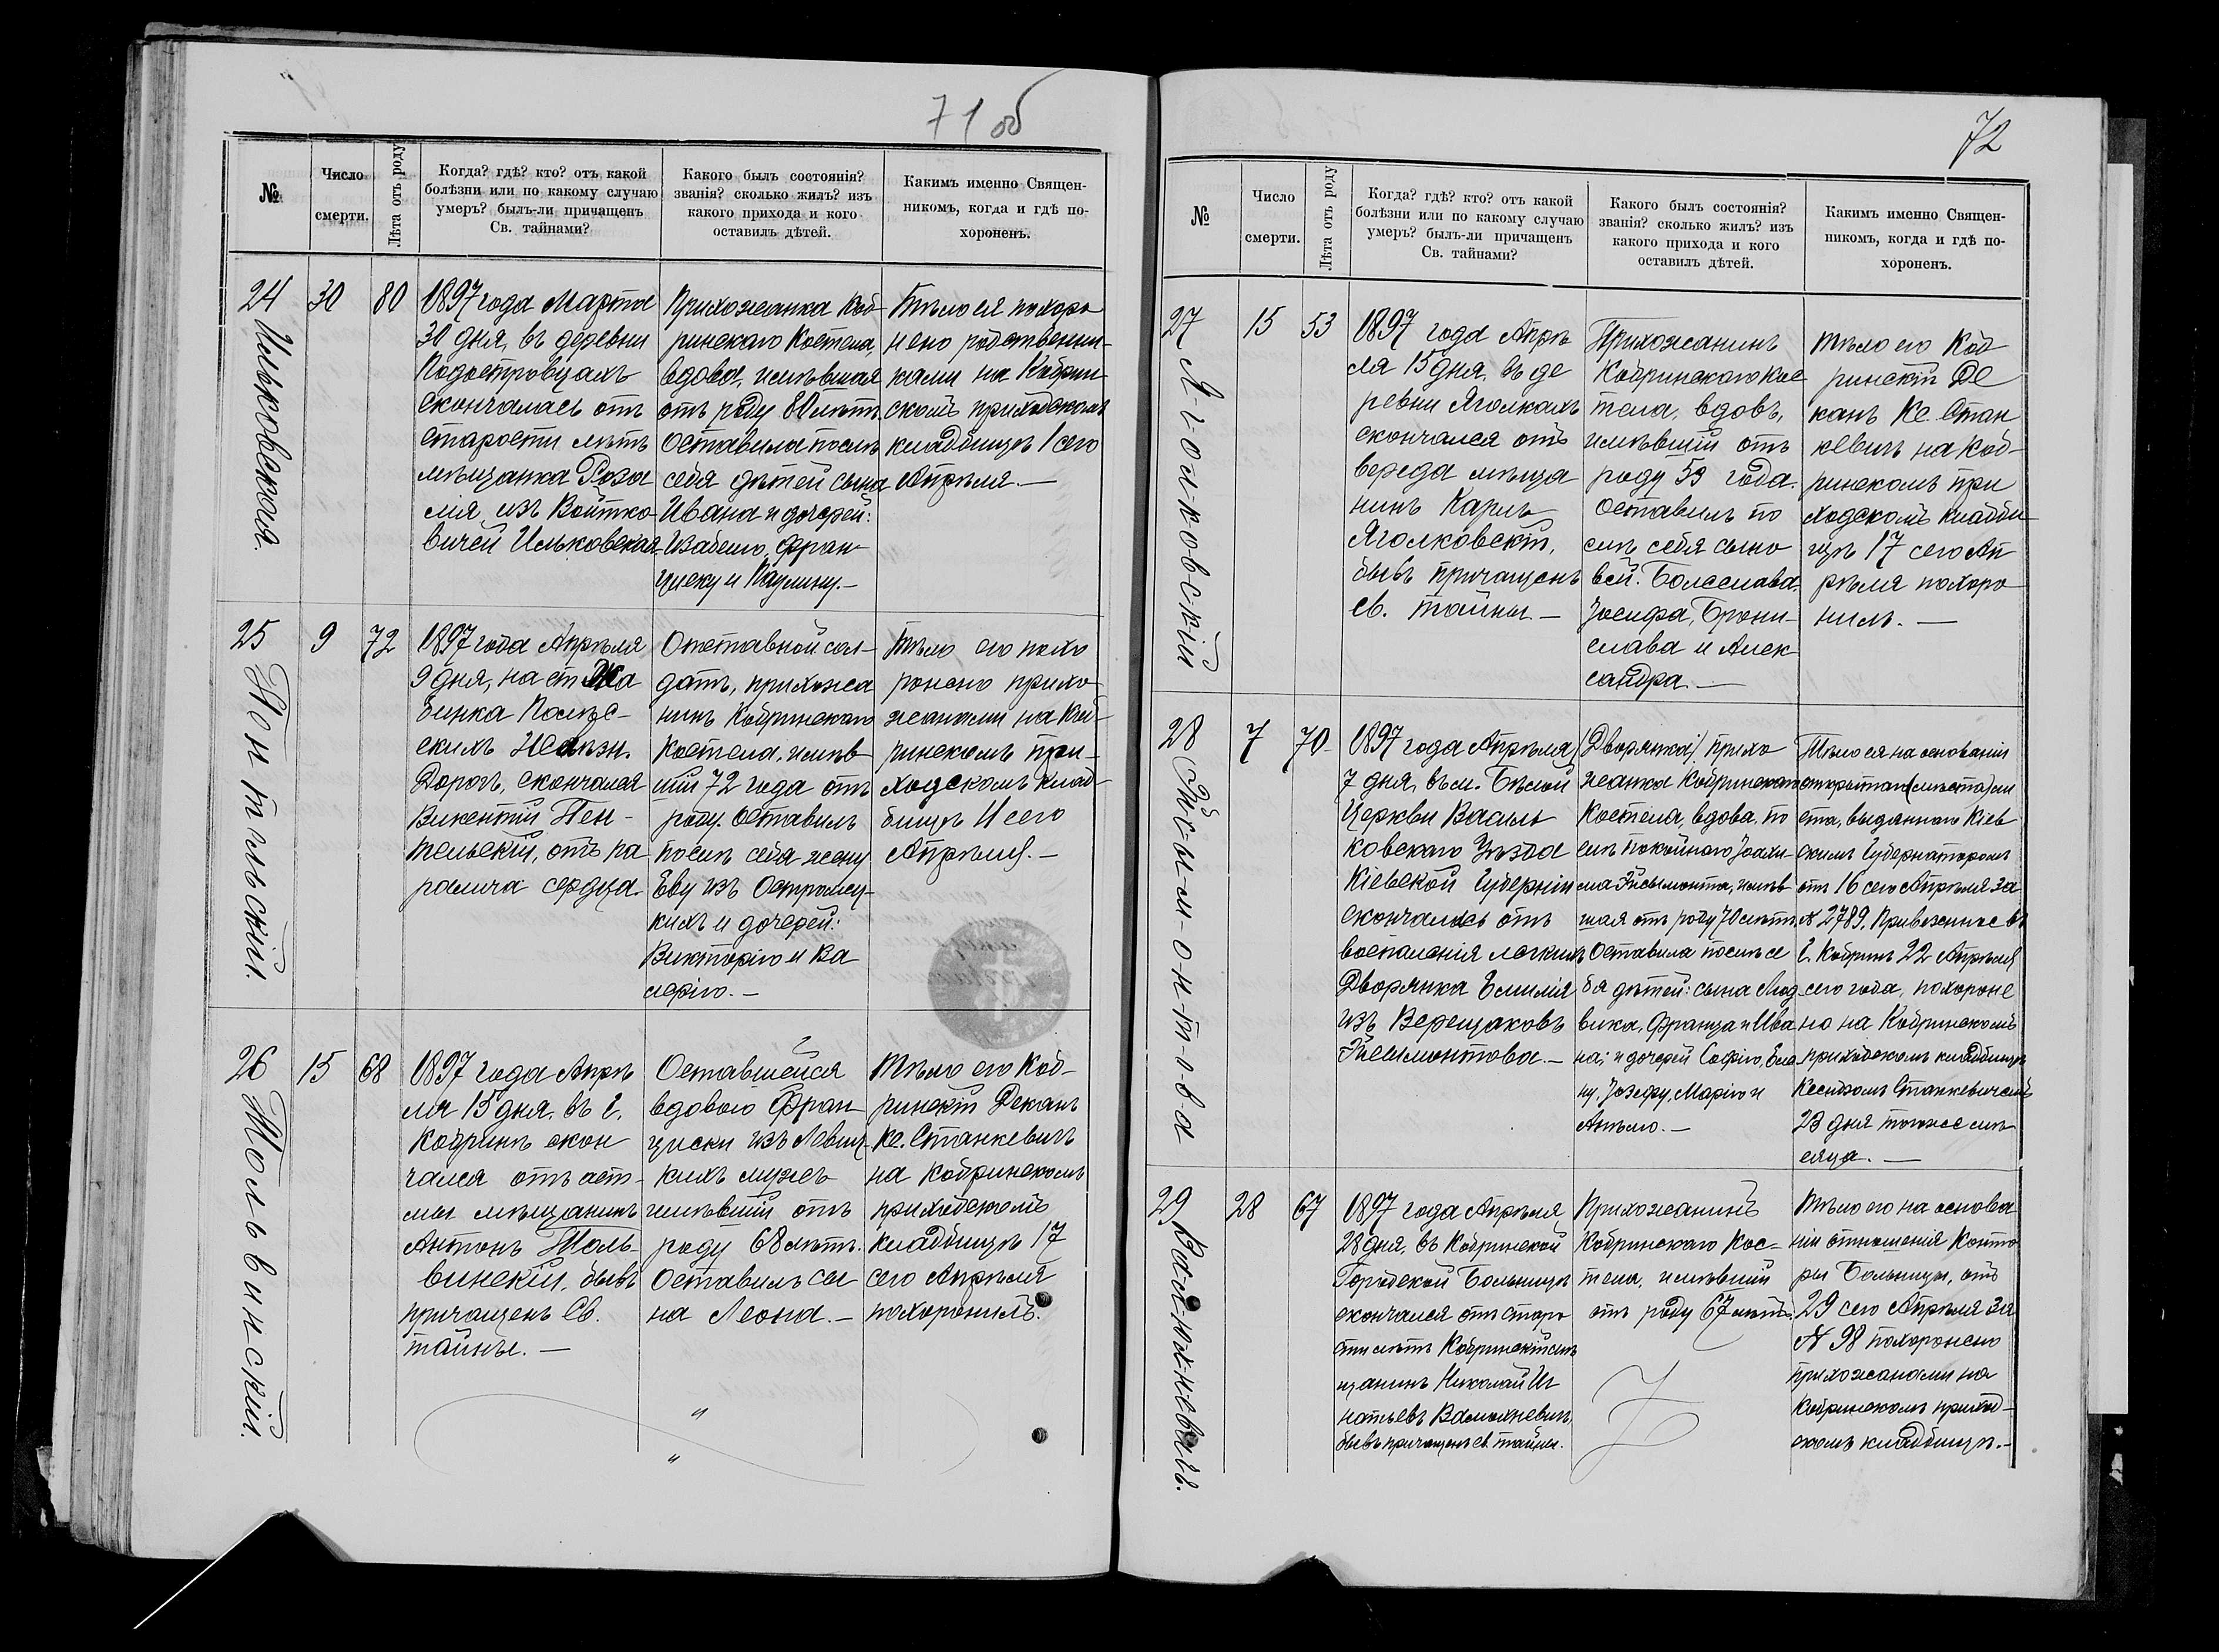 71 об
№
Число
смерти.
Лѣта отъ роду
Когда? гдѣ? кто? отъ какой
болѣзни или по какому случаю
умеръ? былъ-ли причащенъ
Св. тайнами?
Какого былъ состоянія?
званія? сколько жилъ? изъ
какого прихода и кого
оставилъ дѣтей.
Какимъ именно Священ-
никомъ, когда и гдѣ по-
хороненъ.
24
Ильковская.
30
80
1897 года Марта
30 дня, въ деревни
Подостровцахъ
скончалась отъ
старости лѣтъ
мѣщанка Роза
лія изъ Войтко-
вичей Ильковская
Прихожанка Коб-
ринскаго Костела,
вдова, имѣвшая
отъ роду 80 лѣтъ.
Оставила послѣ
себя дѣтей сына
Ивана и дочерей:
Изабелю, Фран-
циску и Паулину.-
Тѣло ея похоро
нено родственни-
ками на Кобрин-
скомъ приходскомъ
кладбищѣ 1 сего
Апрѣля.-
25
Пентельскій.
9
72
1897 года Апрѣля
9 дня, на ст Жа
бинка Полѣс-
скихъ Желѣзн.
Дорогъ, скончался
Викентій Пен-
тельскій, отъ па
ралича сердца.
Отставной сол-
датъ, прихожа
нинъ Кобринскаго
Костела, имѣв-
шій 72 года отъ
роду. Оставилъ
послѣ себя жену
Еву изъ Остромец-
кихъ и дочерей:
Викторію и Ва
лерію.-
Тѣло его похо
ронено прихо-
жанами на Коб-
ринскомъ при-
ходскомъ клад-
бищѣ 11 сего
Апрѣля.-
26
Тольвинскій.
15
68
1897 года Апрѣ
ля 15 дня, въ г.
Кобринѣ скон
чался отъ аст-
мы мѣщанинъ
Антонъ Толь-
винскій, бывъ
причащенъ Св.
тайны.-
Оставшейся
вдовою Фран
циски изъ Левиц-
кихъ мужъ
имѣвшій отъ
роду 68 лѣтъ.
Оставилъ сы
на Леона.-
Тѣло его Коб-
ринскій Деканъ
Кс. Станкевичъ
на Кобринскомъ
приходскомъ
кладбищѣ 17
сего Апрѣля
похоронилъ.
72
№
Число
смерти.
Лѣта отъ роду
Когда? гдѣ? кто? отъ какой
болѣзни или по какому случаю
умеръ? былъ-ли причащенъ
Св. тайнами?
Какого былъ состоянія?
званія? сколько жилъ? изъ
какого прихода и кого
оставилъ дѣтей.
Какимъ именно Священ-
никомъ, когда и гдѣ по-
хороненъ.
27
Яголковскій
15
53
1897 года Апрѣ
ля 15 дня, въ де
ревни Яголкахъ
скончался отъ
вереда мѣща
нинъ Карлъ
Яголковскій,
бывъ причащенъ
Св. тайны.-
Прихожанинъ
Кобринскаго Кос
тела, вдовъ,
имѣвшій отъ
роду 53 года.
Оставилъ по
слѣ себя сыно
вей: Болеслава,
Іосифа, Брони-
слава и Алек
сандра.-
Тѣло его Коб-
ринскій Де
канъ Кс. Стан
кевичъ на Коб-
ринскомъ при
ходскомъ кладби-
щѣ 17 сего Ап
рѣля похоро
нилъ.-
28
Эйсымонтова
7
70
1897 года Апрѣля
7 дня, въ м. Бѣлой
Церкви Василь
ковскаго Уѣзда
Кіевской Губерніи
скончалась отъ
воспаленія легкихъ
Дворянка Емилія
изъ Верещаковъ
Эйсымонтова.-
(Дворянка) прихо
жанка Кобринскаго
Костела, вдова по
слѣ покойнаго Іоахи-
ма Эйсымонта, имѣв
шая отъ роду 70 лѣтъ.
Оставила послѣ се
бя дѣтей: сына Люд-
вика, Франца и Ива
на; и дочерей Софію, Еле
ну, Іозефу, Марію и
Анѣлю.-
Тѣло ея на основаніи
открытаго (мѣста) ли
ста, выданнаго Кіев
скимъ Губернаторомъ
отъ 16 сего Апрѣля за
№ 2789, Привезенное въ
г. Кобринъ 22 Апрѣля
сего года, похороне
но на Кобринскомъ
приходскомъ кладбищѣ
Ксендзомъ Станкевичемъ
23 дня того же мѣ
сяца.-
29
Валюхневичъ.
28
67
1897 года Апрѣля
28 дня, въ Кобринской
Городской Больницѣ
скончался отъ старо
сти лѣтъ Кобринскій мѣ
щанинъ Николай Иг
натьевъ Валюхневичъ,
бывъ причащенъ св. тайны.
Прихожанинъ
Кобринскаго Кос-
тела, имѣвшій
отъ роду 67 лѣтъ.
Тѣло его на основа
ніи отношенія Конто
ры Больницы, отъ
29 сего Апрѣля за
№ 98 похоронено
прихожанами на
Кобринскомъ приход-
скомъ кладбищѣ.-